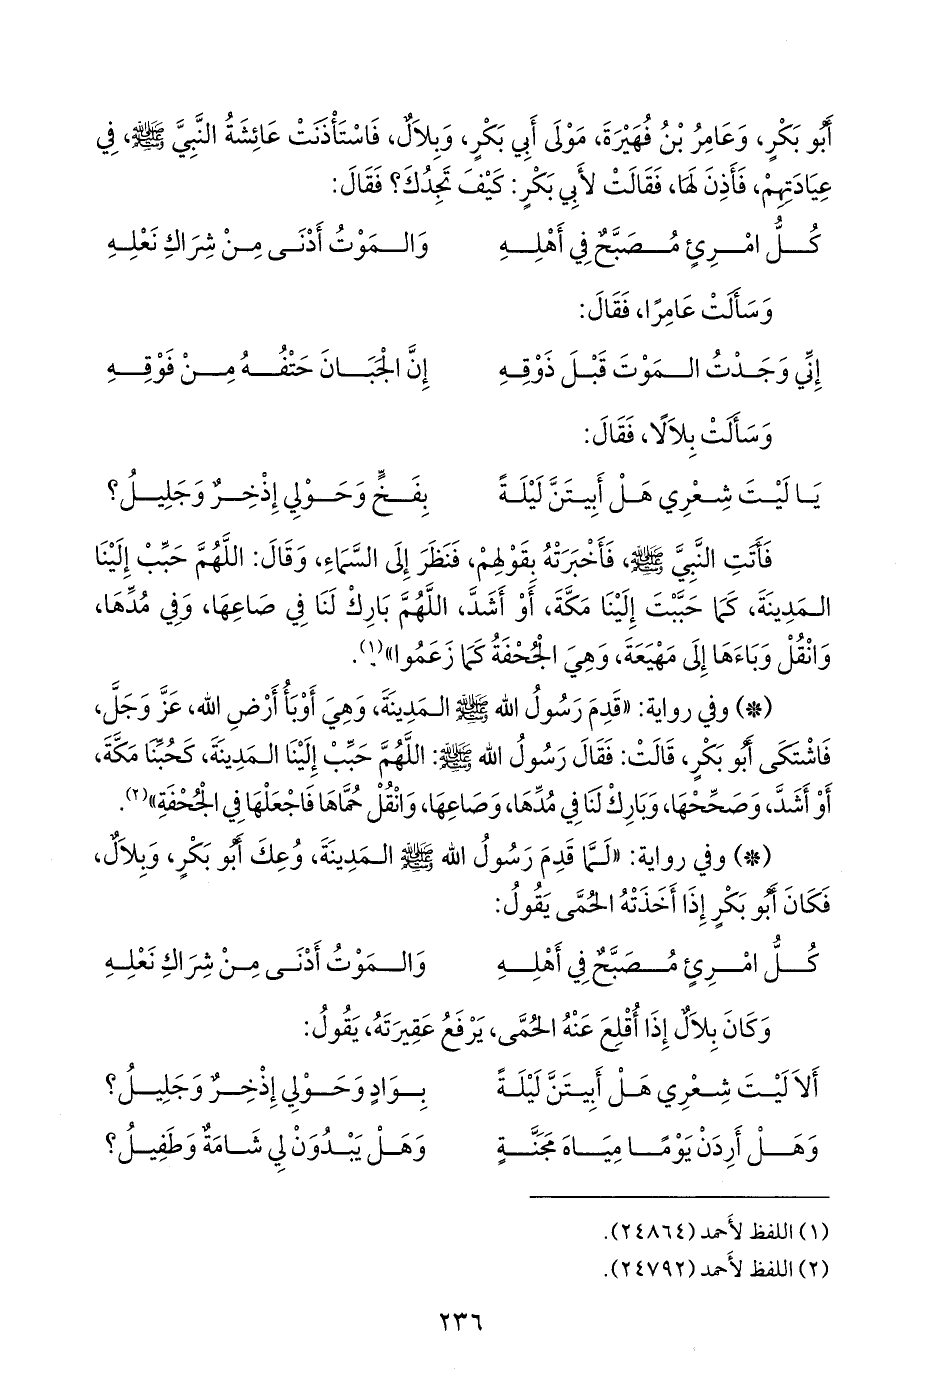 أَبُو بَكْرٍ، وَعَامِرُ بْنُ فُهَيْرَةَ، مَوْلَى أَبِي بَكْرٍ، وَبِلاَلٌ، فَاسْتَأْذَنَتْ عَائِشَةُ النَّبِيَّ ﷺ، فِي
عِيَادَتِهِمْ، فَأَذِنَ لَهَا، فَقَالَتْ لأَبِي بَكْرٍ: كَيْفَ تَجِدُكَ؟ فَقَالَ:
كُـــلُّ امْـــرِئٍ مُـــصَبَّحٌ فِي أَهْلِـــهِ وَالـــمَوْتُ أَدْنَـــى مِـــنْ شِرَاكِ نَعْلِـــهِ
وَسَأَلَتْ عَامِرًا، فَقَالَ:
إِنِّي وَجَـــدْتُ الـــمَوْتَ قَبْـــلَ ذَوْقِـــهِ إِنَّ الْجَبَـــانَ حَتْفُـــهُ مِـــنْ فَوْقِـــهِ
وَسَأَلَتْ بِلاَلًا، فَقَالَ:
يَـــا لَيْـــتَ شِـــعْرِي هَـــلْ أَبِيـــتَنَّ لَيْلَـــةً بِفَـــخٍّ وَحَـــوْلِي إِذْخِـــرٌ وَجَلِيـــلُ؟
فَأَتَتِ النَّبِيَّ ﷺ، فَأَخْبَرَتْهُ بِقَوْلِهِمْ، فَنَظَرَ إِلَى السَّمَاءِ، وَقَالَ: اللَّهُمَّ حَبِّبْ إِلَيْنَا
الـمَدِينَةَ، كَمَا حَبَّبْتَ إِلَيْنَا مَكَّةَ، أَوْ أَشَدَّ، اللَّهُمَّ بَارِكْ لَنَا فِي صَاعِهَا، وَفِي مُدِّهَا،
وَانْقُلْ وَبَاءَهَا إِلَى مَهْيَعَةَ، وَهِيَ الْجُحْفَةُ كَمَا زَعَمُوا»(١).
(*) وفي رواية: «قَدِمَ رَسُولُ الله ﷺ الـمَدِينَةَ، وَهِيَ أَوْبَأُ أَرْضِ الله، عَزَّ وَجَلَّ،
فَاشْتَكَى أَبُو بَكْرٍ، قَالَتْ: فَقَالَ رَسُولُ الله ﷺ: اللَّهُمَّ حَبِّبْ إِلَيْنَا الـمَدِينَةَ، كَحُبِّنَا مَكَّةَ،
أَوْ أَشَدَّ، وَصَحِّحْهَا، وَبَارِكْ لَنَا فِي مُدِّهَا، وَصَاعِهَا، وَانْقُلْ حُمَّاهَا فَاجْعَلْهَا فِي الْجُحْفَةِ»(٢).
(*) وفي رواية: «لَـمَّا قَدِمَ رَسُولُ الله ﷺ الـمَدِينَةَ، وُعِكَ أَبُو بَكْرٍ، وَبِلاَلٌ،
فَكَانَ أَبُو بَكْرٍ إِذَا أَخَذَتْهُ الْحُمَّى يَقُولُ:
كُـــلُّ امْـــرِئٍ مُـــصَبَّحٌ فِي أَهْلِـــهِ وَالـــمَوْتُ أَدْنَـــى مِـــنْ شِرَاكِ نَعْلِـــهِ
وَكَانَ بِلاَلٌ إِذَا أُقْلِعَ عَنْهُ الْحُمَّى، يَرْفَعُ عَقِيرَتَهُ، يَقُولُ:
أَلاَ لَيْـــتَ شِـــعْرِي هَـــلْ أَبِيـــتَنَّ لَيْلَـــةً بِـــوَادٍ وَحَـــوْلِي إِذْخِـــرٌ وَجَلِيـــلُ؟
وَهَـــلْ أَرِدَنْ يَوْمًـــا مِيَـــاهَ مَجَنَّـــةٍ وَهَـــلْ يَبْـــدُوَنْ لِي شَـــامَةٌ وَطَفِيـــلُ؟
(١) اللفظ لأَحمد (٢٤٨٦٤).
(٢) اللفظ لأَحمد (٢٤٧٩٢).
٢٣٦